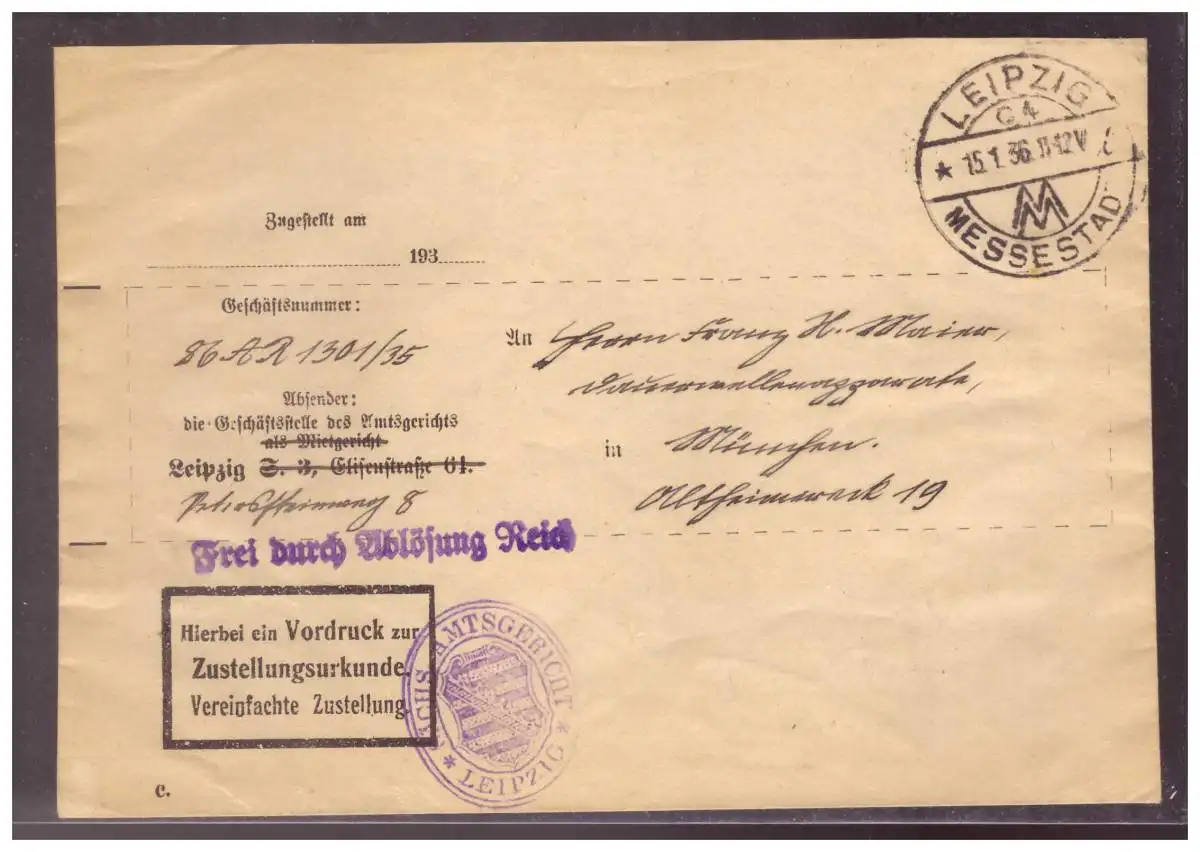 LEIPZIG
C 4
* 15.1.36.11-12V
MESSESTADT
Zugestellt am
193
Geschäftsnummer:
26 AR 1301/35
Absender:
die Geschäftsstelle des Amtsgerichts
als Mietgericht
Leipzig S. 3, Elisenstraße 64.
Peterssteinweg 8
An Herrn Franz X. Maier,
Dauerwellenapparate,
in München.
Altheimereck 19
Frei durch Ablösung Reich
Hierbei ein Vordruck zur
Zustellungsurkunde.
Vereinfachte Zustellung.
SÄCHS. AMTSGERICHT
* LEIPZIG *
c.